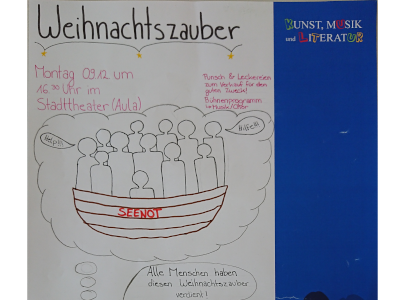 Weihnachtszauber
Montag 09.12 um
16³⁰ Uhr im
Stadttheater (Aula)
Punsch & Leckereien
zum Verkauf für den
guten Zweck!
Bühnenprogramm
KUNST, MUSIK
und LITERATUR
Help!!!
Hilfe!!!
SEENOT
Alle Menschen haben
diesen Weihnachtszauber
verdient!